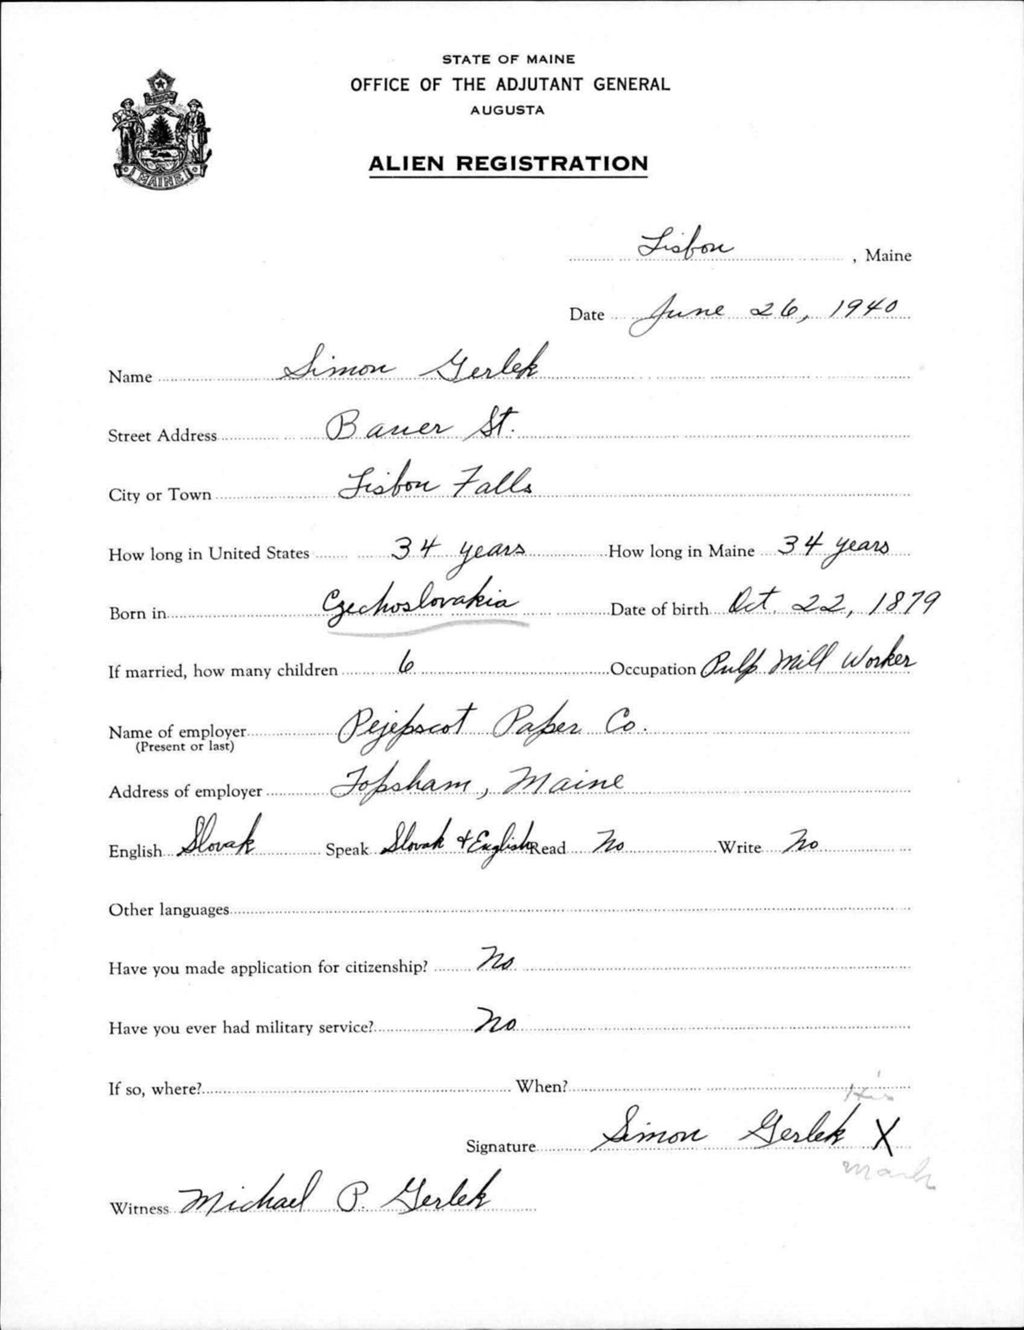 STATE OF MAINE
OFFICE OF THE ADJUTANT GENERAL
AUGUSTA
ALIEN REGISTRATION
MAINE
Lisbon, Maine
Date June 26, 1940
Name Simon Gerlek
Street Address Bauer St.
City or Town Lisbon Falls
How long in United States 34 years How long in Maine 34 years
Born in Czechoslovakia Date of birth Oct. 22, 1879
If married, how many children 6 Occupation Pulp Mill Worker
Name of employer Pejepscot Paper Co.
(Present or last)
Address of employer Topsham, Maine
English Slovak Speak Slovak + English Read No Write No
Other languages
Have you made application for citizenship? No
Have you ever had military service? No
If so, where? When?
His
Signature Simon Gerlek X
mark
Witness Michael P. Gerlek